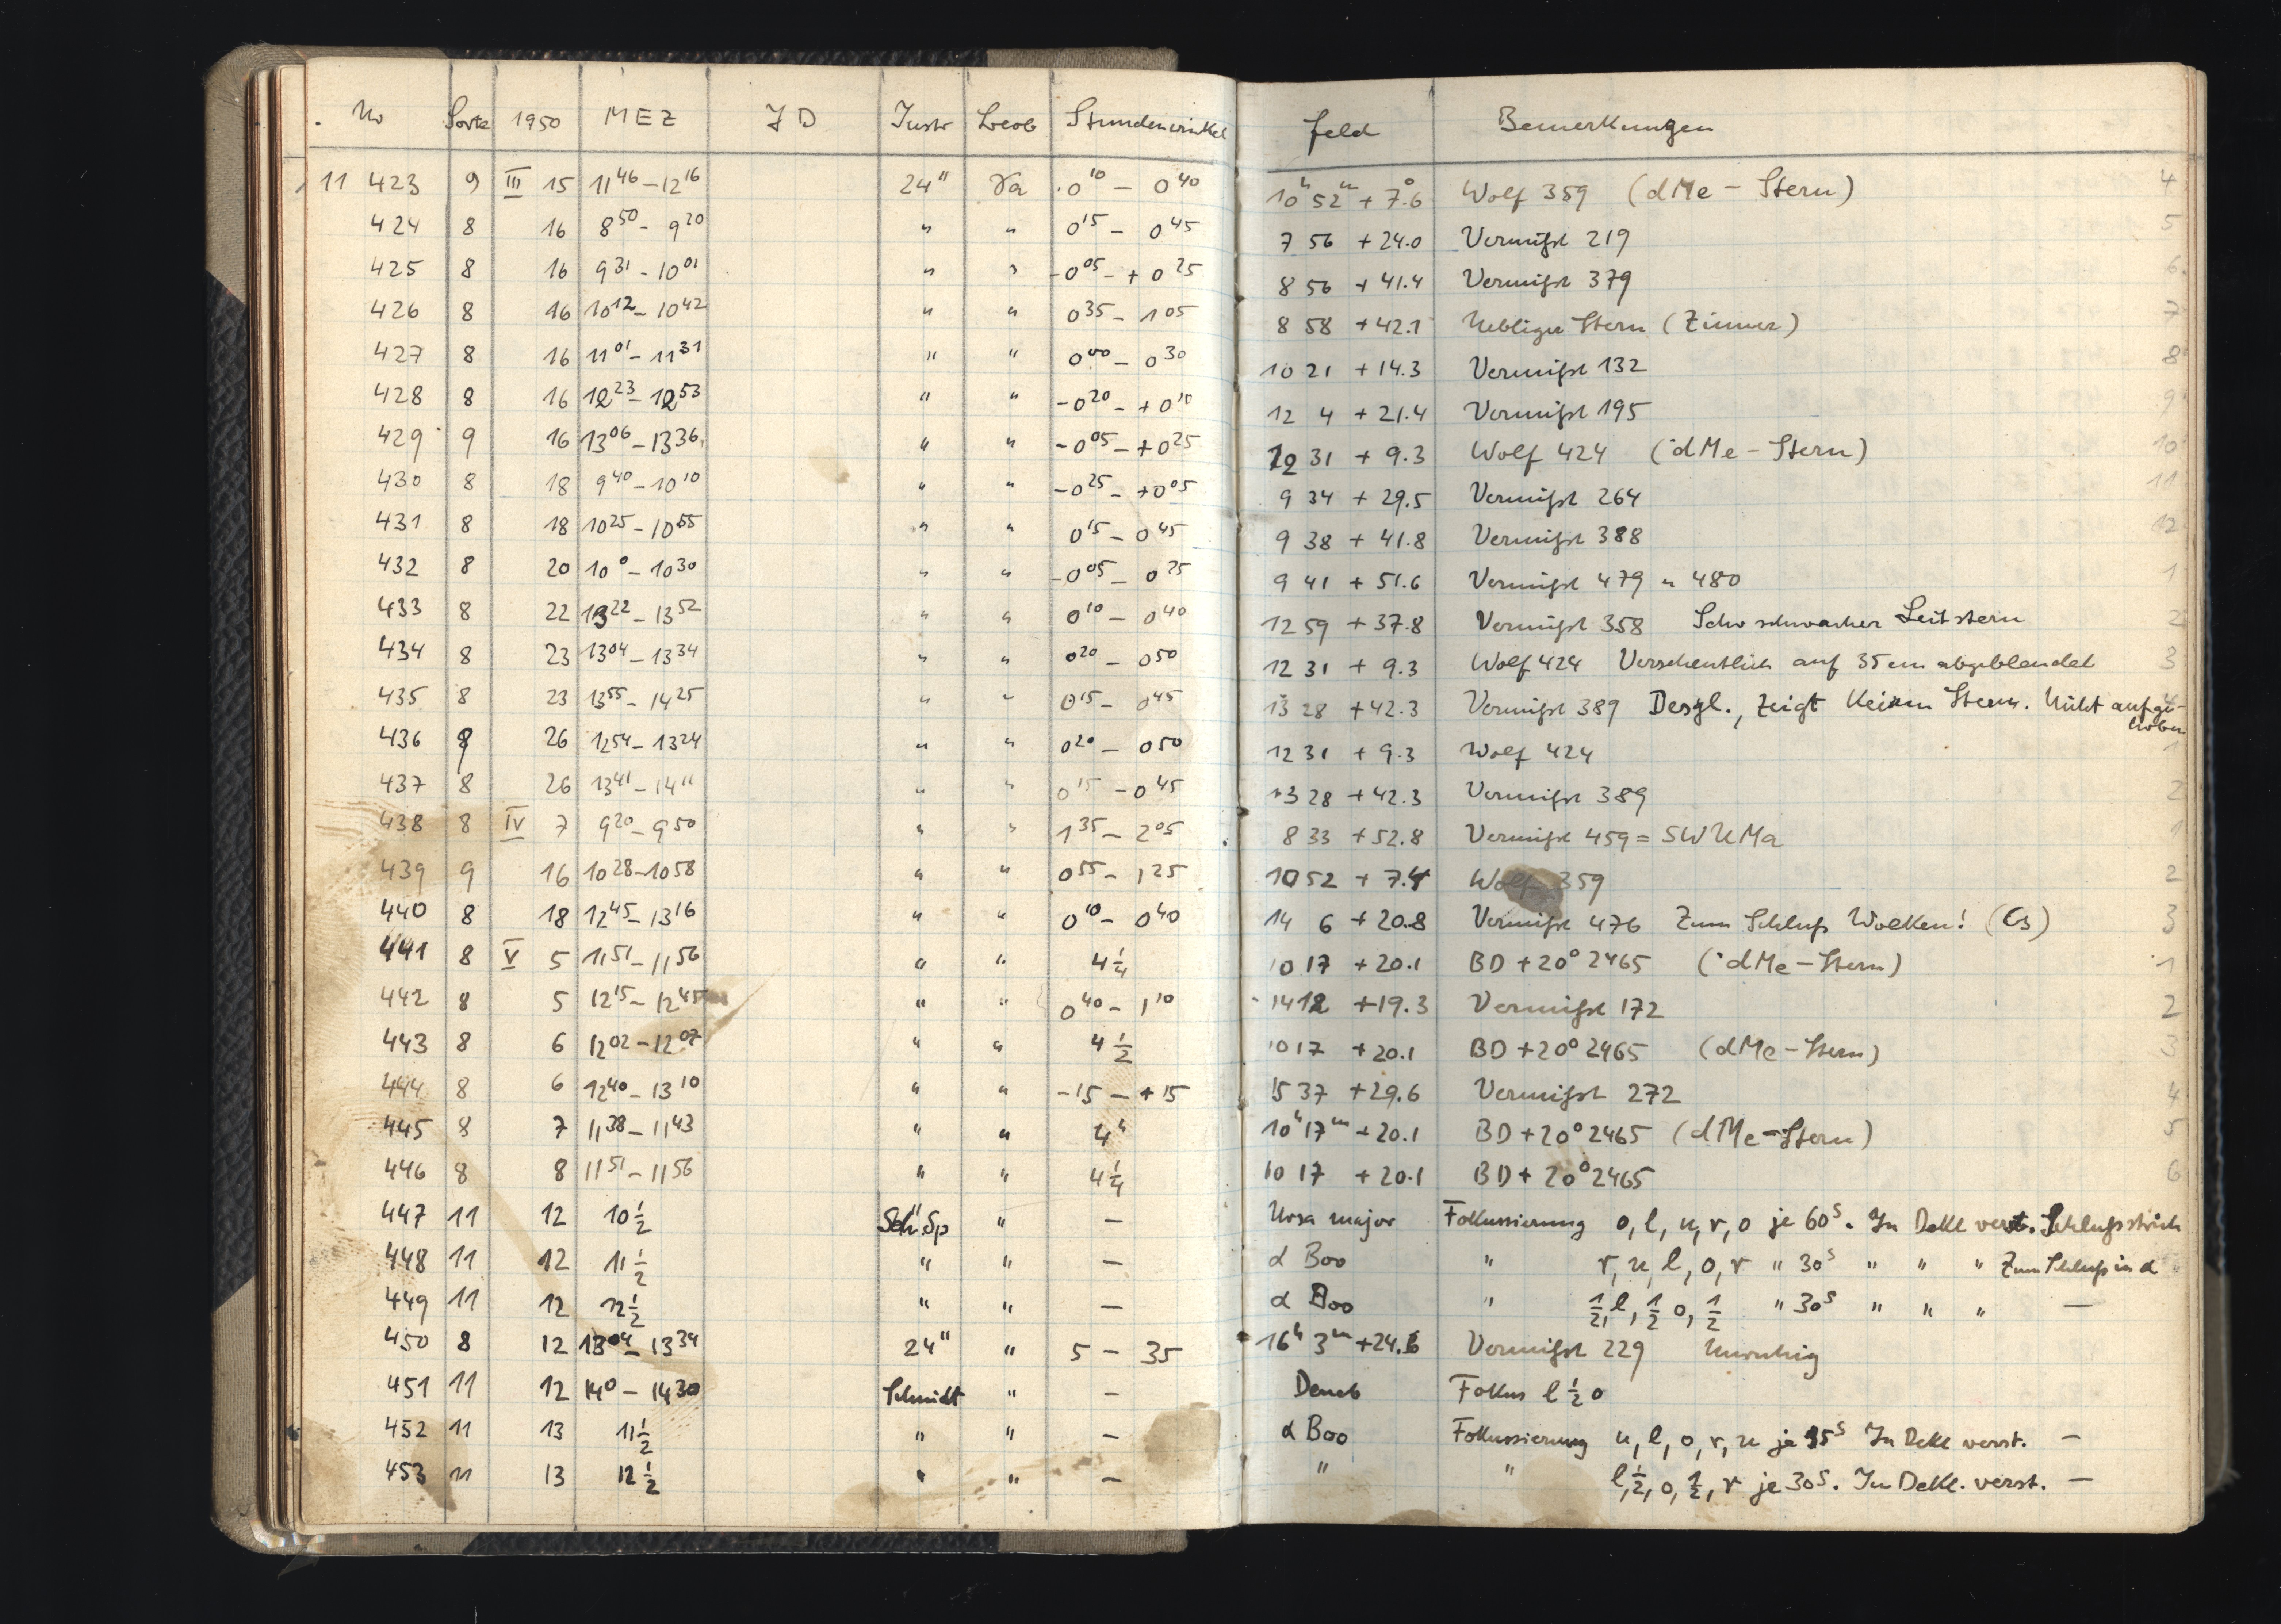 Nr Sorte 1950 MEZ JD Instr Beob Stundenwinkel Feld Bemerkungen
11 423 9 III 15 11 46 – 12 16 24" Va 0 10 – 0 40 10h 52m + 7.°6 Wolf 359 (dMe – Stern) 4
424 8 16 8 50 – 9 20 " " 0 15 – 0 45 7 56 + 24.0 Vermißt 219 5
425 8 16 9 31 – 10 01 " " -0 05 – +0 25 8 56 + 41.4 Vermißt 379 6
426 8 16 10 12 – 10 42 " " 0 35 – 1 05 8 58 + 42.1 Nebliger Stern (Zinner) 7
427 8 16 11 01 – 11 31 " " 0 00 – 0 30 10 21 + 14.3 Vermißt 132 8
428 8 16 12 23 – 12 53 " " -0 20 – +0 10 12 4 + 21.4 Vermißt 195 9
429 9 16 13 06 – 13 36 " " -0 05 – +0 25 12 31 + 9.3 Wolf 424 (dMe – Stern) 10
430 8 18 9 40 – 10 10 " " -0 25 – +0 05 9 34 + 29.5 Vermißt 264 11
431 8 18 10 25 – 10 55 " " 0 15 – 0 45 9 38 + 41.8 Vermißt 388 12
432 8 20 10 0 – 10 30 " " -0 05 – 0 25 9 41 + 51.6 Vermißt 479 u 480 1
433 8 22 13 22 – 13 52 " " 0 10 – 0 40 12 59 + 37.8 Vermißt 358 Sehr schwacher Leitstern 2
434 8 23 13 04 – 13 34 " " 0 20 – 0 50 12 31 + 9.3 Wolf 424 Versehentlich auf 35 cm abgeblendet 3
435 8 23 13 55 – 14 25 " " 0 15 – 0 45 13 28 + 42.3 Vermißt 389 Desgl., zeigt keinen Stern. Nicht aufge-
hoben
436 9 26 12 54 – 13 24 " " 0 20 – 0 50 12 31 + 9.3 Wolf 424 1
437 8 26 13 41 – 14 11 " " 0 15 – 0 45 13 28 + 42.3 Vermißt 389 2
438 8 IV 7 9 20 – 9 50 " " 1 35 – 2 05 8 33 + 52.8 Vermißt 459 = SW UMa 1
439 9 16 10 28 – 10 58 " " 0 55 – 1 25 10 52 + 7.4 Wolf 359 2
440 8 18 12 45 – 13 16 " " 0 10 – 0 40 14 6 + 20.8 Vermißt 476 Zum Schluß Wolken! (Cs) 3
441 8 V 5 11 51 – 11 56 " " 4 1/4 10 17 + 20.1 BD + 20° 2465 (dMe – Stern) 1
442 8 5 12 15 – 12 45 " " 0 40 – 1 10 14 12 + 19.3 Vermißt 172 2
443 8 6 12 02 – 12 07 " " 4 1/2 10 17 + 20.1 BD + 20° 2465 (dMe – Stern) 3
444 8 6 12 40 – 13 10 " " -15 – +15 15 37 + 29.6 Vermißt 272 4
445 8 7 11 38 – 11 43 " " 4h 10h 17m + 20.1 BD + 20° 2465 (dMe – Stern) 5
446 8 8 11 51 – 11 56 " " 4 1/4 10 17 + 20.1 BD + 20° 2465 6
447 11 12 10 1/2 Sch. Sp " – Ursa major Fokussierung o, l, u, r, o je 60s. In Dekl verst. Schlußstrich
448 11 12 11 1/2 " " – α Boo " r, u, l, o, r " 30s " " " Zum Schluß in α
449 11 12 12 1/2 " " – α Boo " 1/2, l, 1/2 o, 1/2 " 30s " " " –
450 8 12 13 04 – 13 34 24" " 5 – 35 16h 3m + 24.6 Vermißt 229 Unruhig
451 11 12 14 0 – 14 30 Schmidt " – Deneb Fokus l 1/2 o
452 11 13 11 1/2 " " – α Boo Fokussierung u, l, o, r, u je 35s In Dekl verst. –
453 11 13 12 1/2 " " – " " l, 1/2, o, 1/2, r je 30s. In Dekl. verst. –